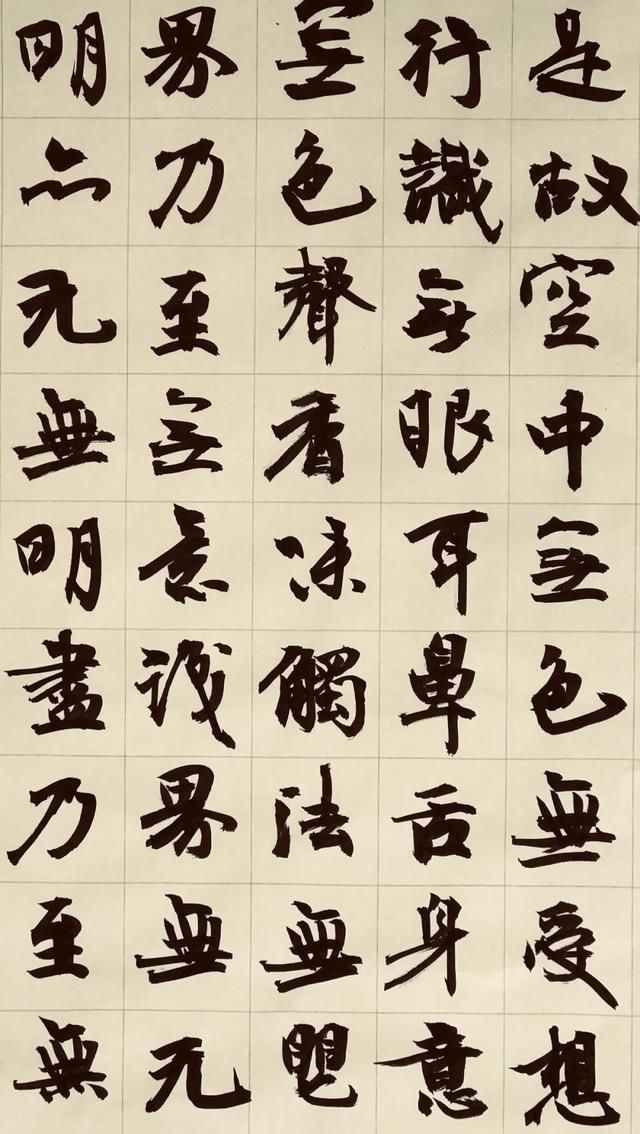 是故空中無色無受想
行識無眼耳鼻舌身意
無色聲香味觸法無眼
界乃至無意識界無无
明亦无無明盡乃至無